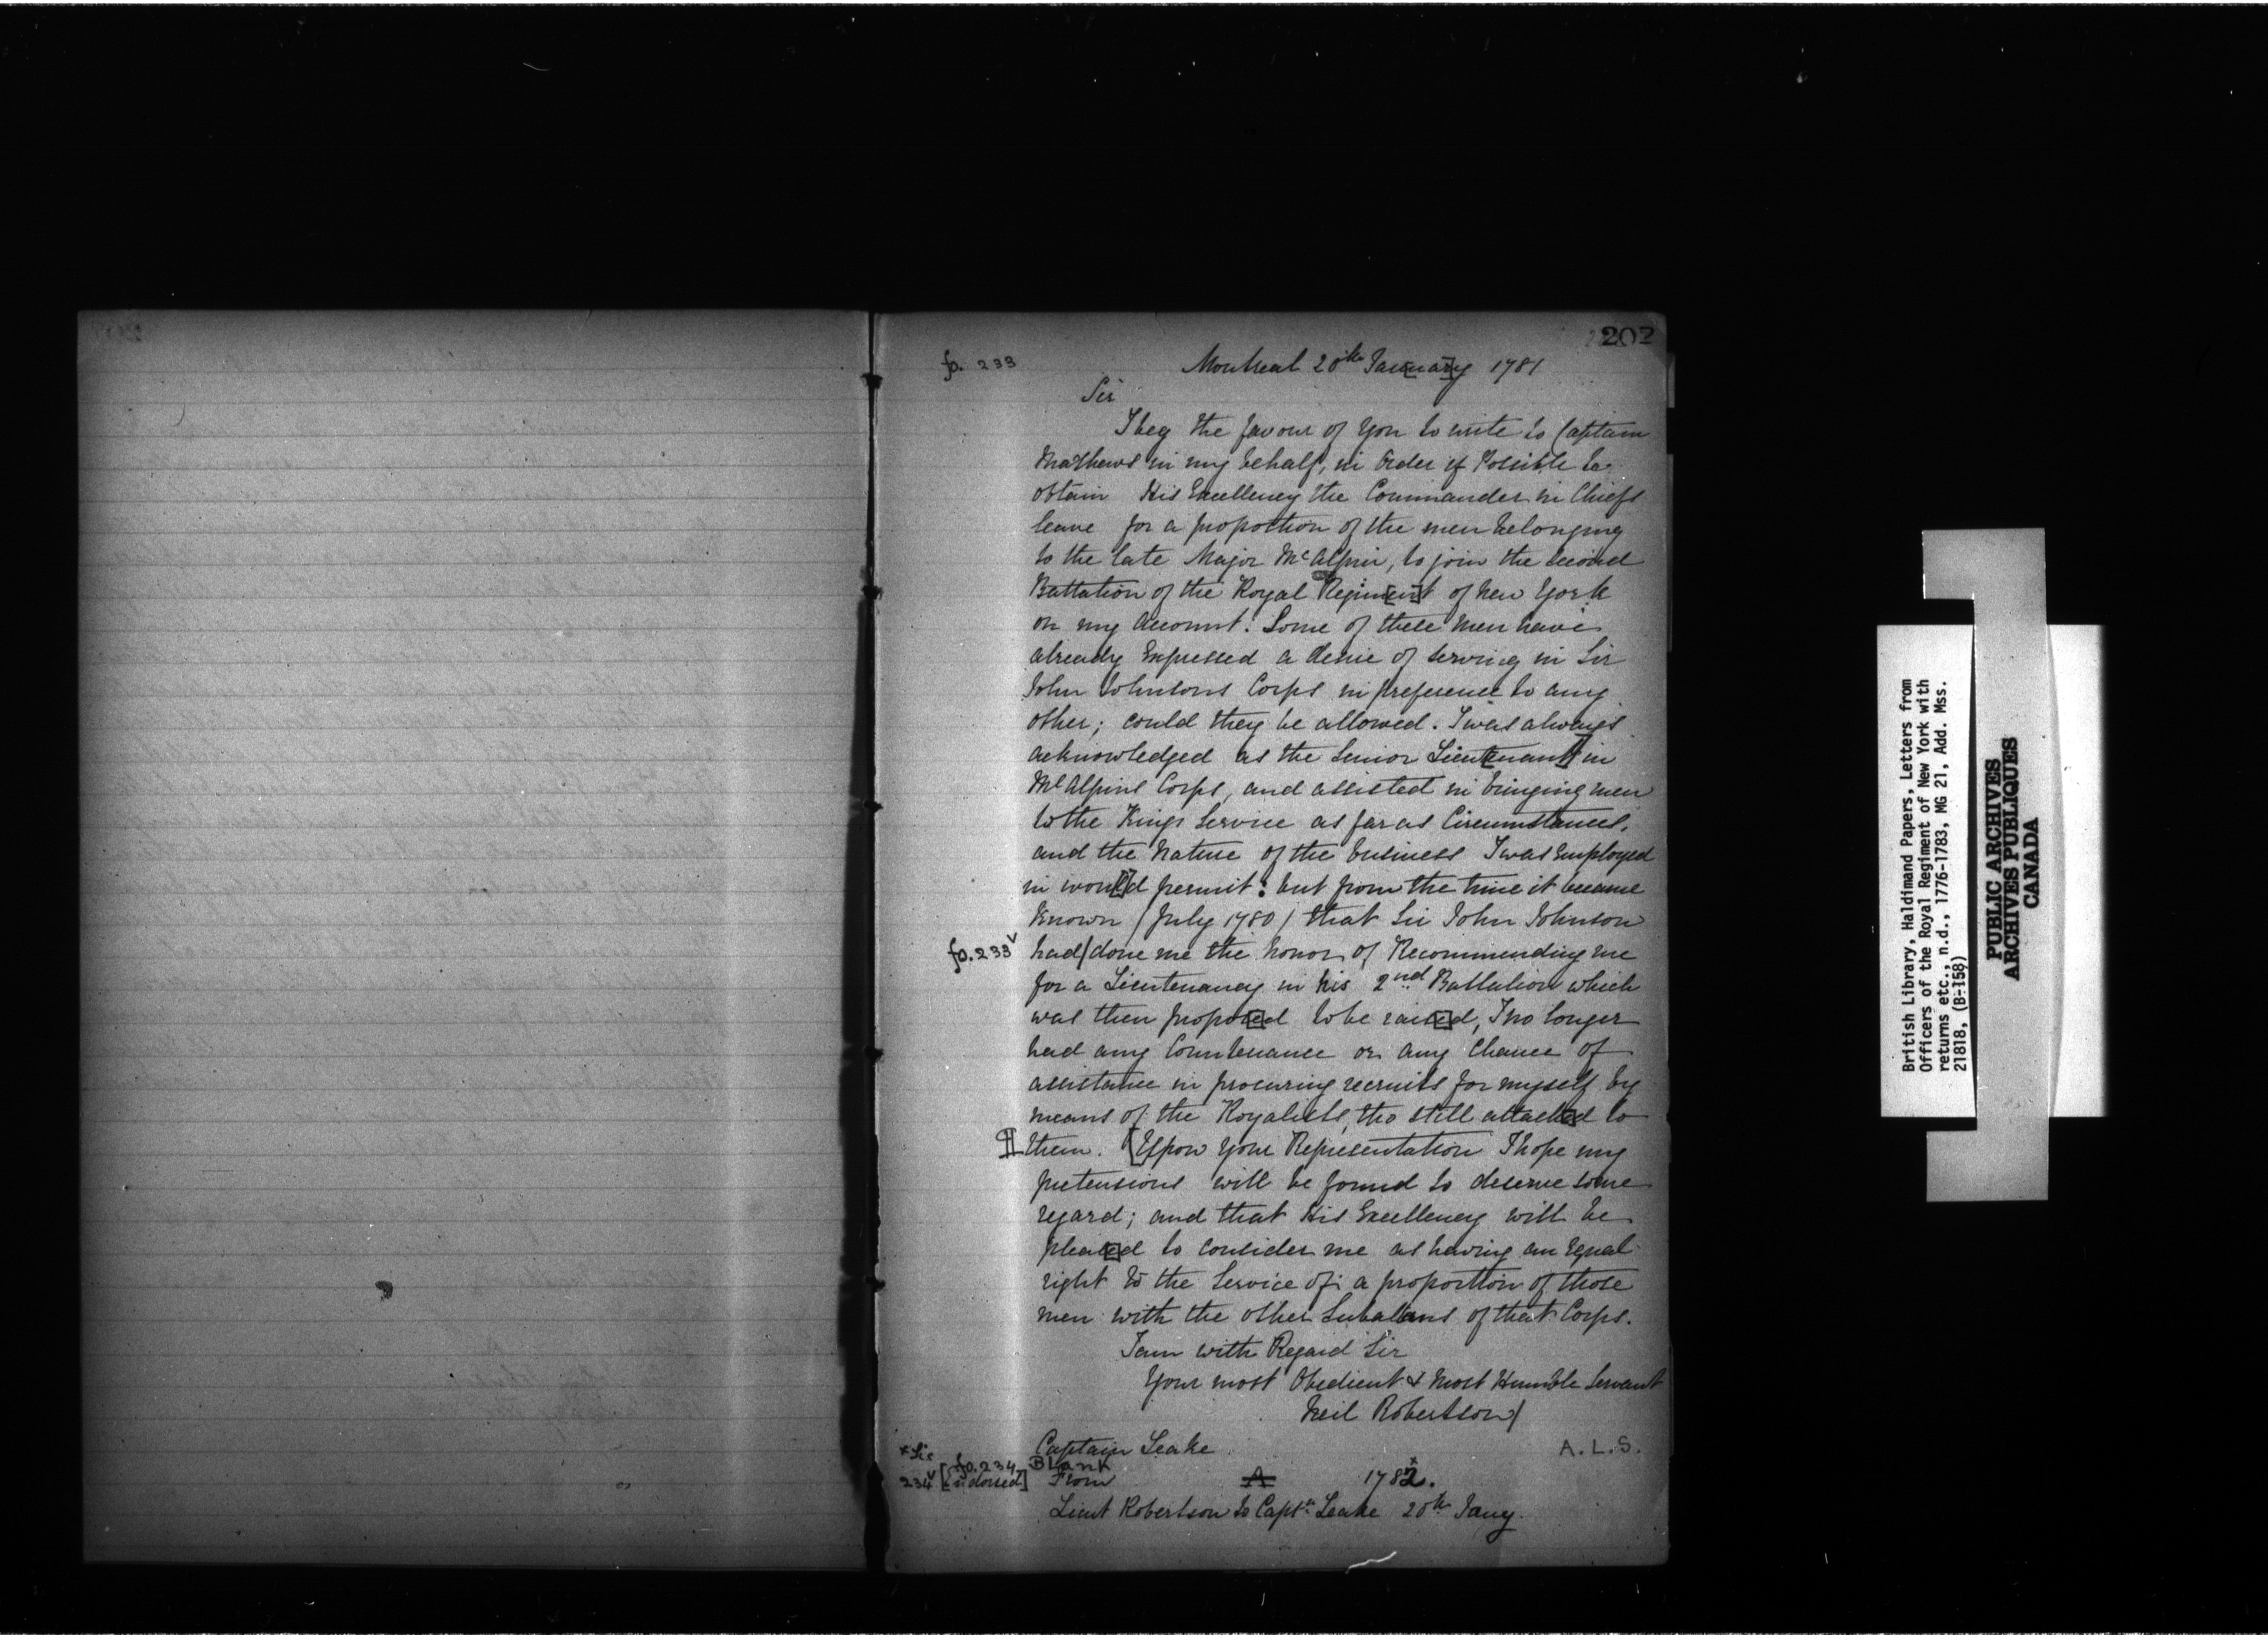 202
fo. 233
Montreal 20th Jan[uar]y 1781
Sir
I beg the favour of You to write to Captain
Mathews in my behalf, in Order if Possible to
obtain His Excellency the Commander in Chiefs
leave for a proportion of the men belonging
to the late Major McAlpin, to join the second
Battation of the Royal Regim[en]t of New York
on my Account. Some of these Men have
already Expressed a desire of serving in Sir
John Johnsons Corps in preference to any
other; could they be allowed. I was always
acknowledged as the Senior Lieut[enant] in
McAlpins Corps, and assisted in bringing men
to the Kings Service as far as Circumstances,
and the Nature of the business I was Employed
in wou[l]d permit: but from the time it became
Known (July 1780) that Sir John Johnson
fo. 233v had/done me the honor of Recommending me
for a Lieutenancy in his 2nd Battalion which
was then propos[e]d to be rais[e]d, I no longer
had any Countenance or any Chance of
assistance in procuring recruits for myself by
means of the Royalists, tho still attach[e]d to
¶ them. [Upon Your Representation I hope my
pretensions will be found to deserve some
regard; and that His Excellency will be
pleas[e]d to consider me as having an Equal
right to the Service of a proportion of those
men with the other Subalterns of that Corps.
I am with Regard Sir
Your most Obedient & Most Humble Servant
Neil Robertson/
Captain Leake
A.L.S.
*Sic
fo. 234 Blank
234v [Endorsed] From A 1782*.
Lieut Robertson to Captn Leake 20th Jany.
British Library, Haldimand Papers, Letters from
Officers of the Royal Regiment of New York with
returns etc., n.d., 1776-1783, MG 21, Add. Mss.
21818, (B-158)
PUBLIC ARCHIVES
ARCHIVES PUBLIQUES
CANADA